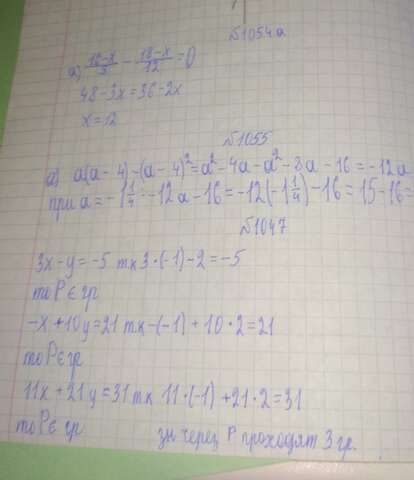 №1054a
a) (16-x)/8 - (18-x)/12 = 0
48-3x=36-2x
x=12
№1055
a) a(a-4)-(a-4)²=a²-4a-a²-8a-16=-12a
при a=-1 1/4 = -12a-16=-12(-1 1/4)-16=15-16=
№1047
3x-y=-5 тк 3·(-1)-2=-5
то P∈ гр
-x+10y=21 тк -(-1)+10·2=21
то P∈ гр
11x+21y=31 тк 11·(-1)+21·2=31
то P∈ гр зн через P проходят 3 гр.